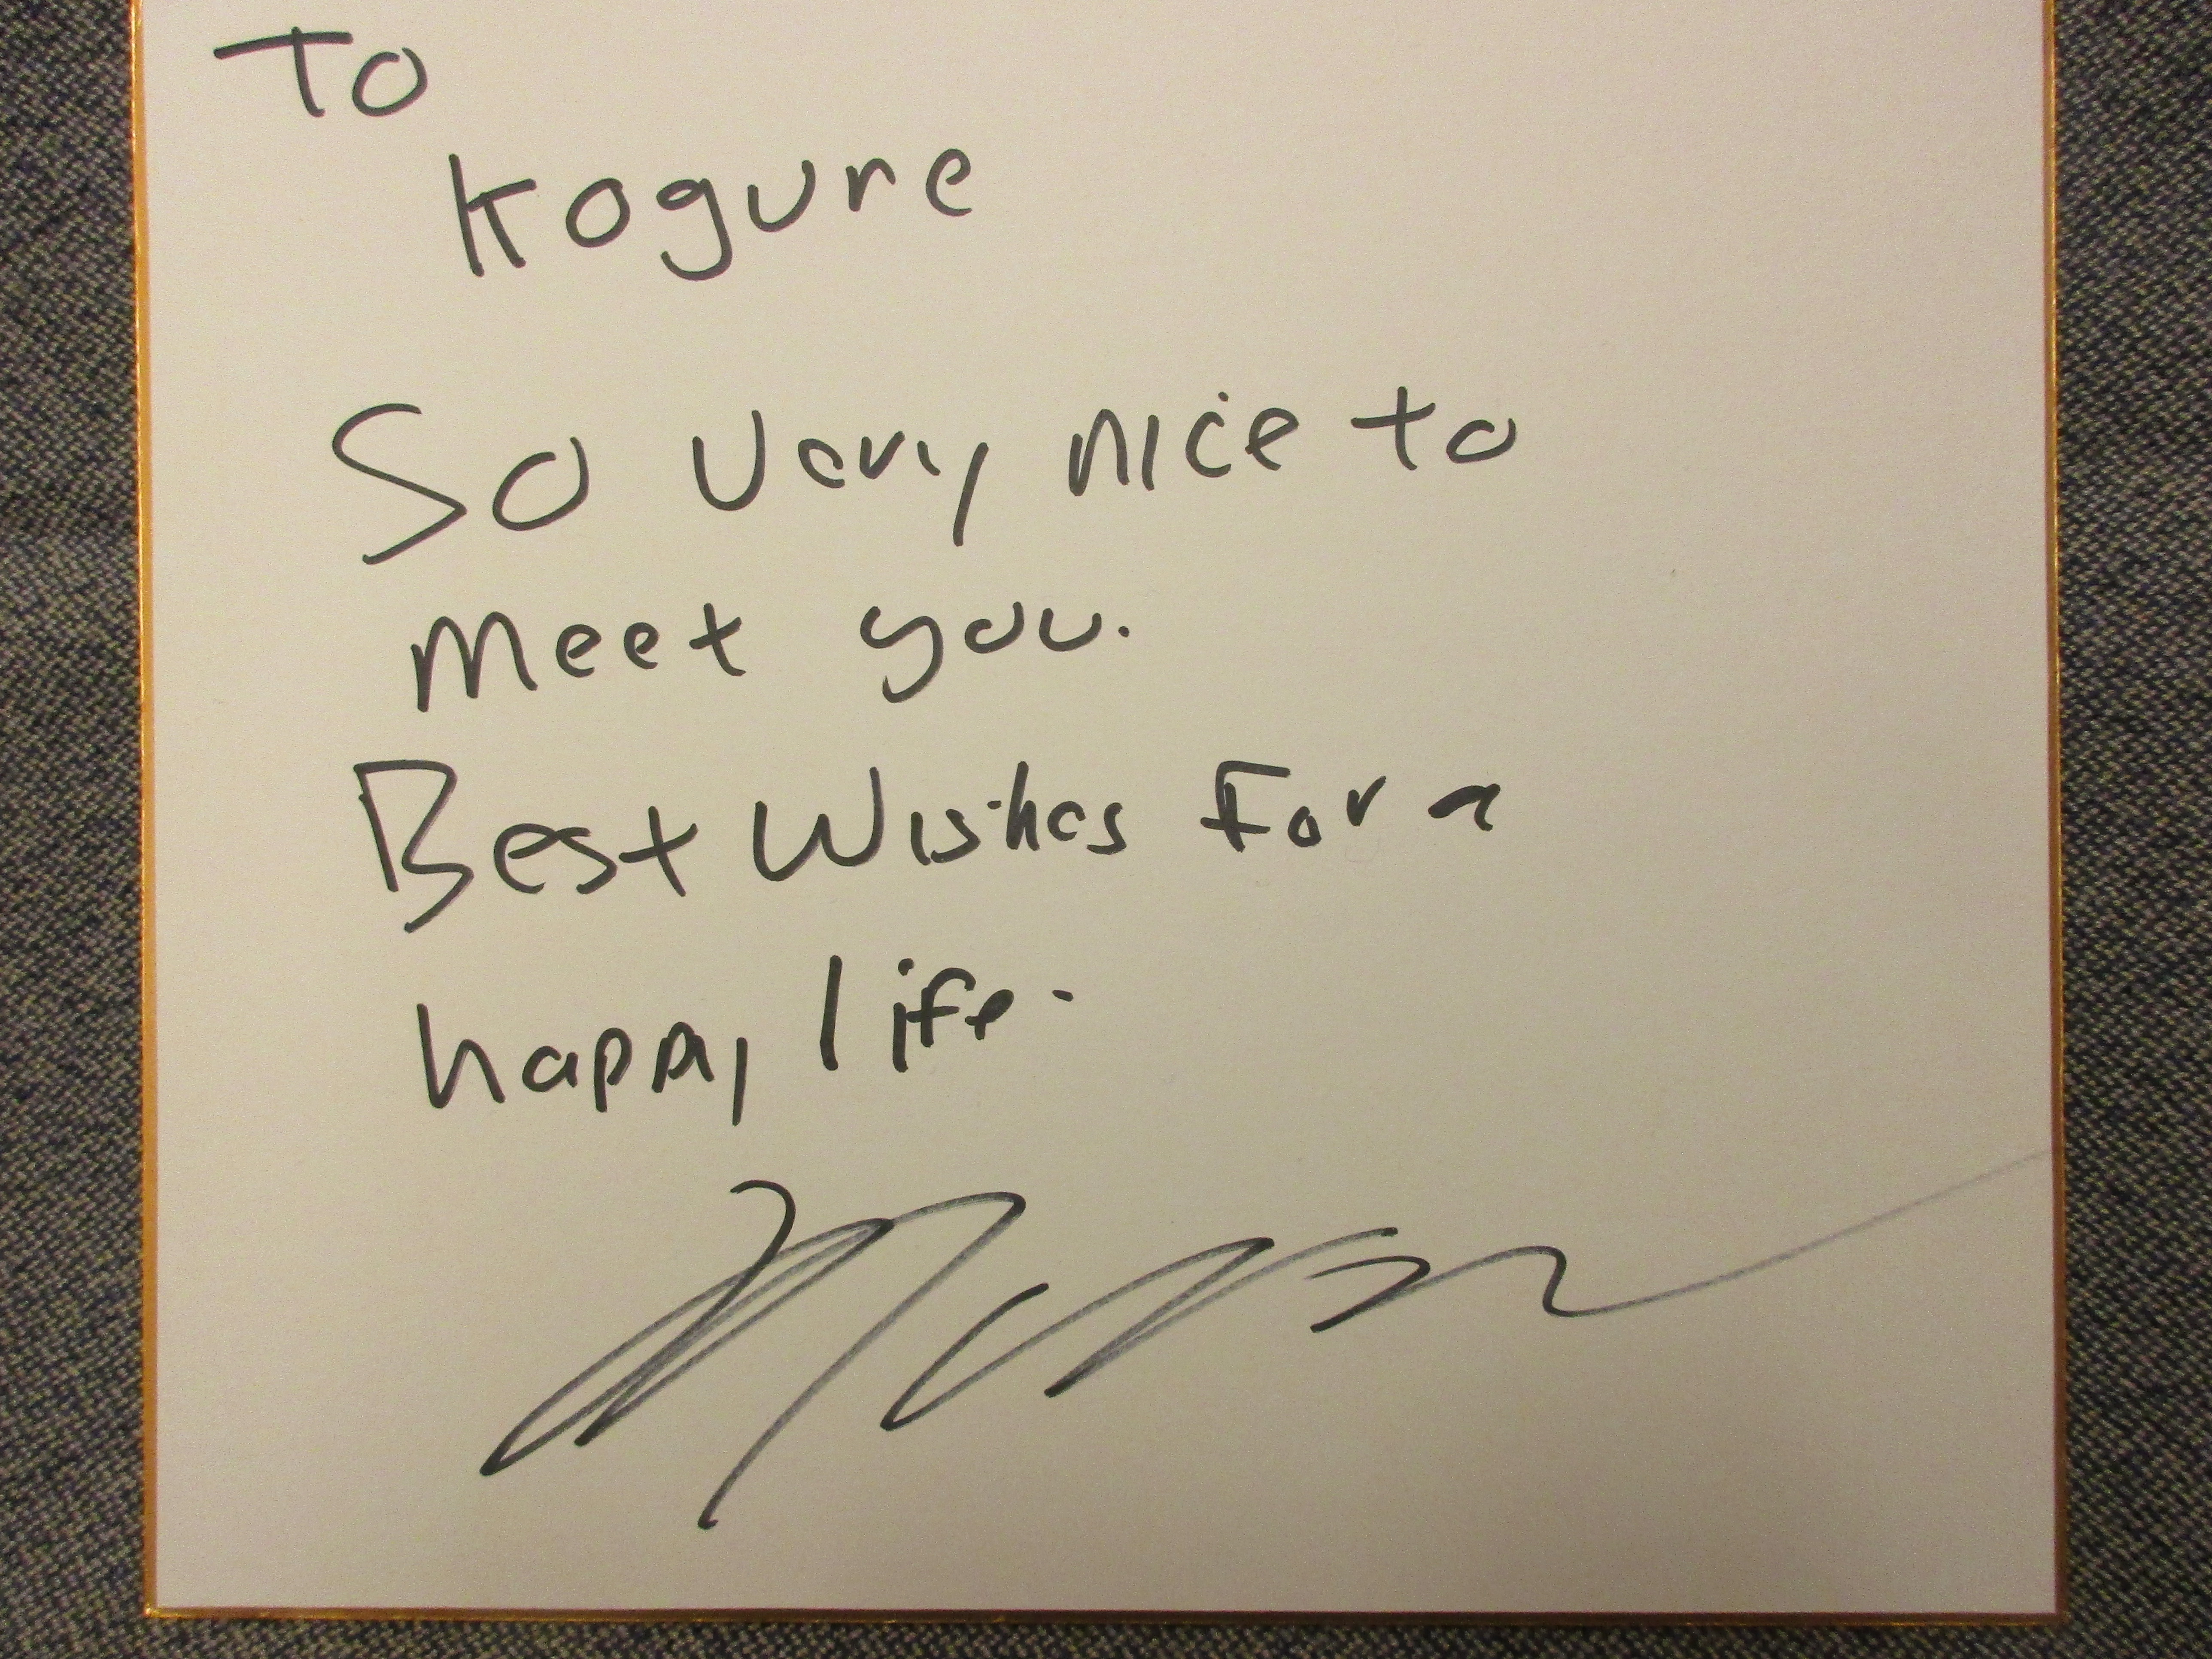 To
Kogure
So very nice to
meet you.
Best Wishes For a
happy life.